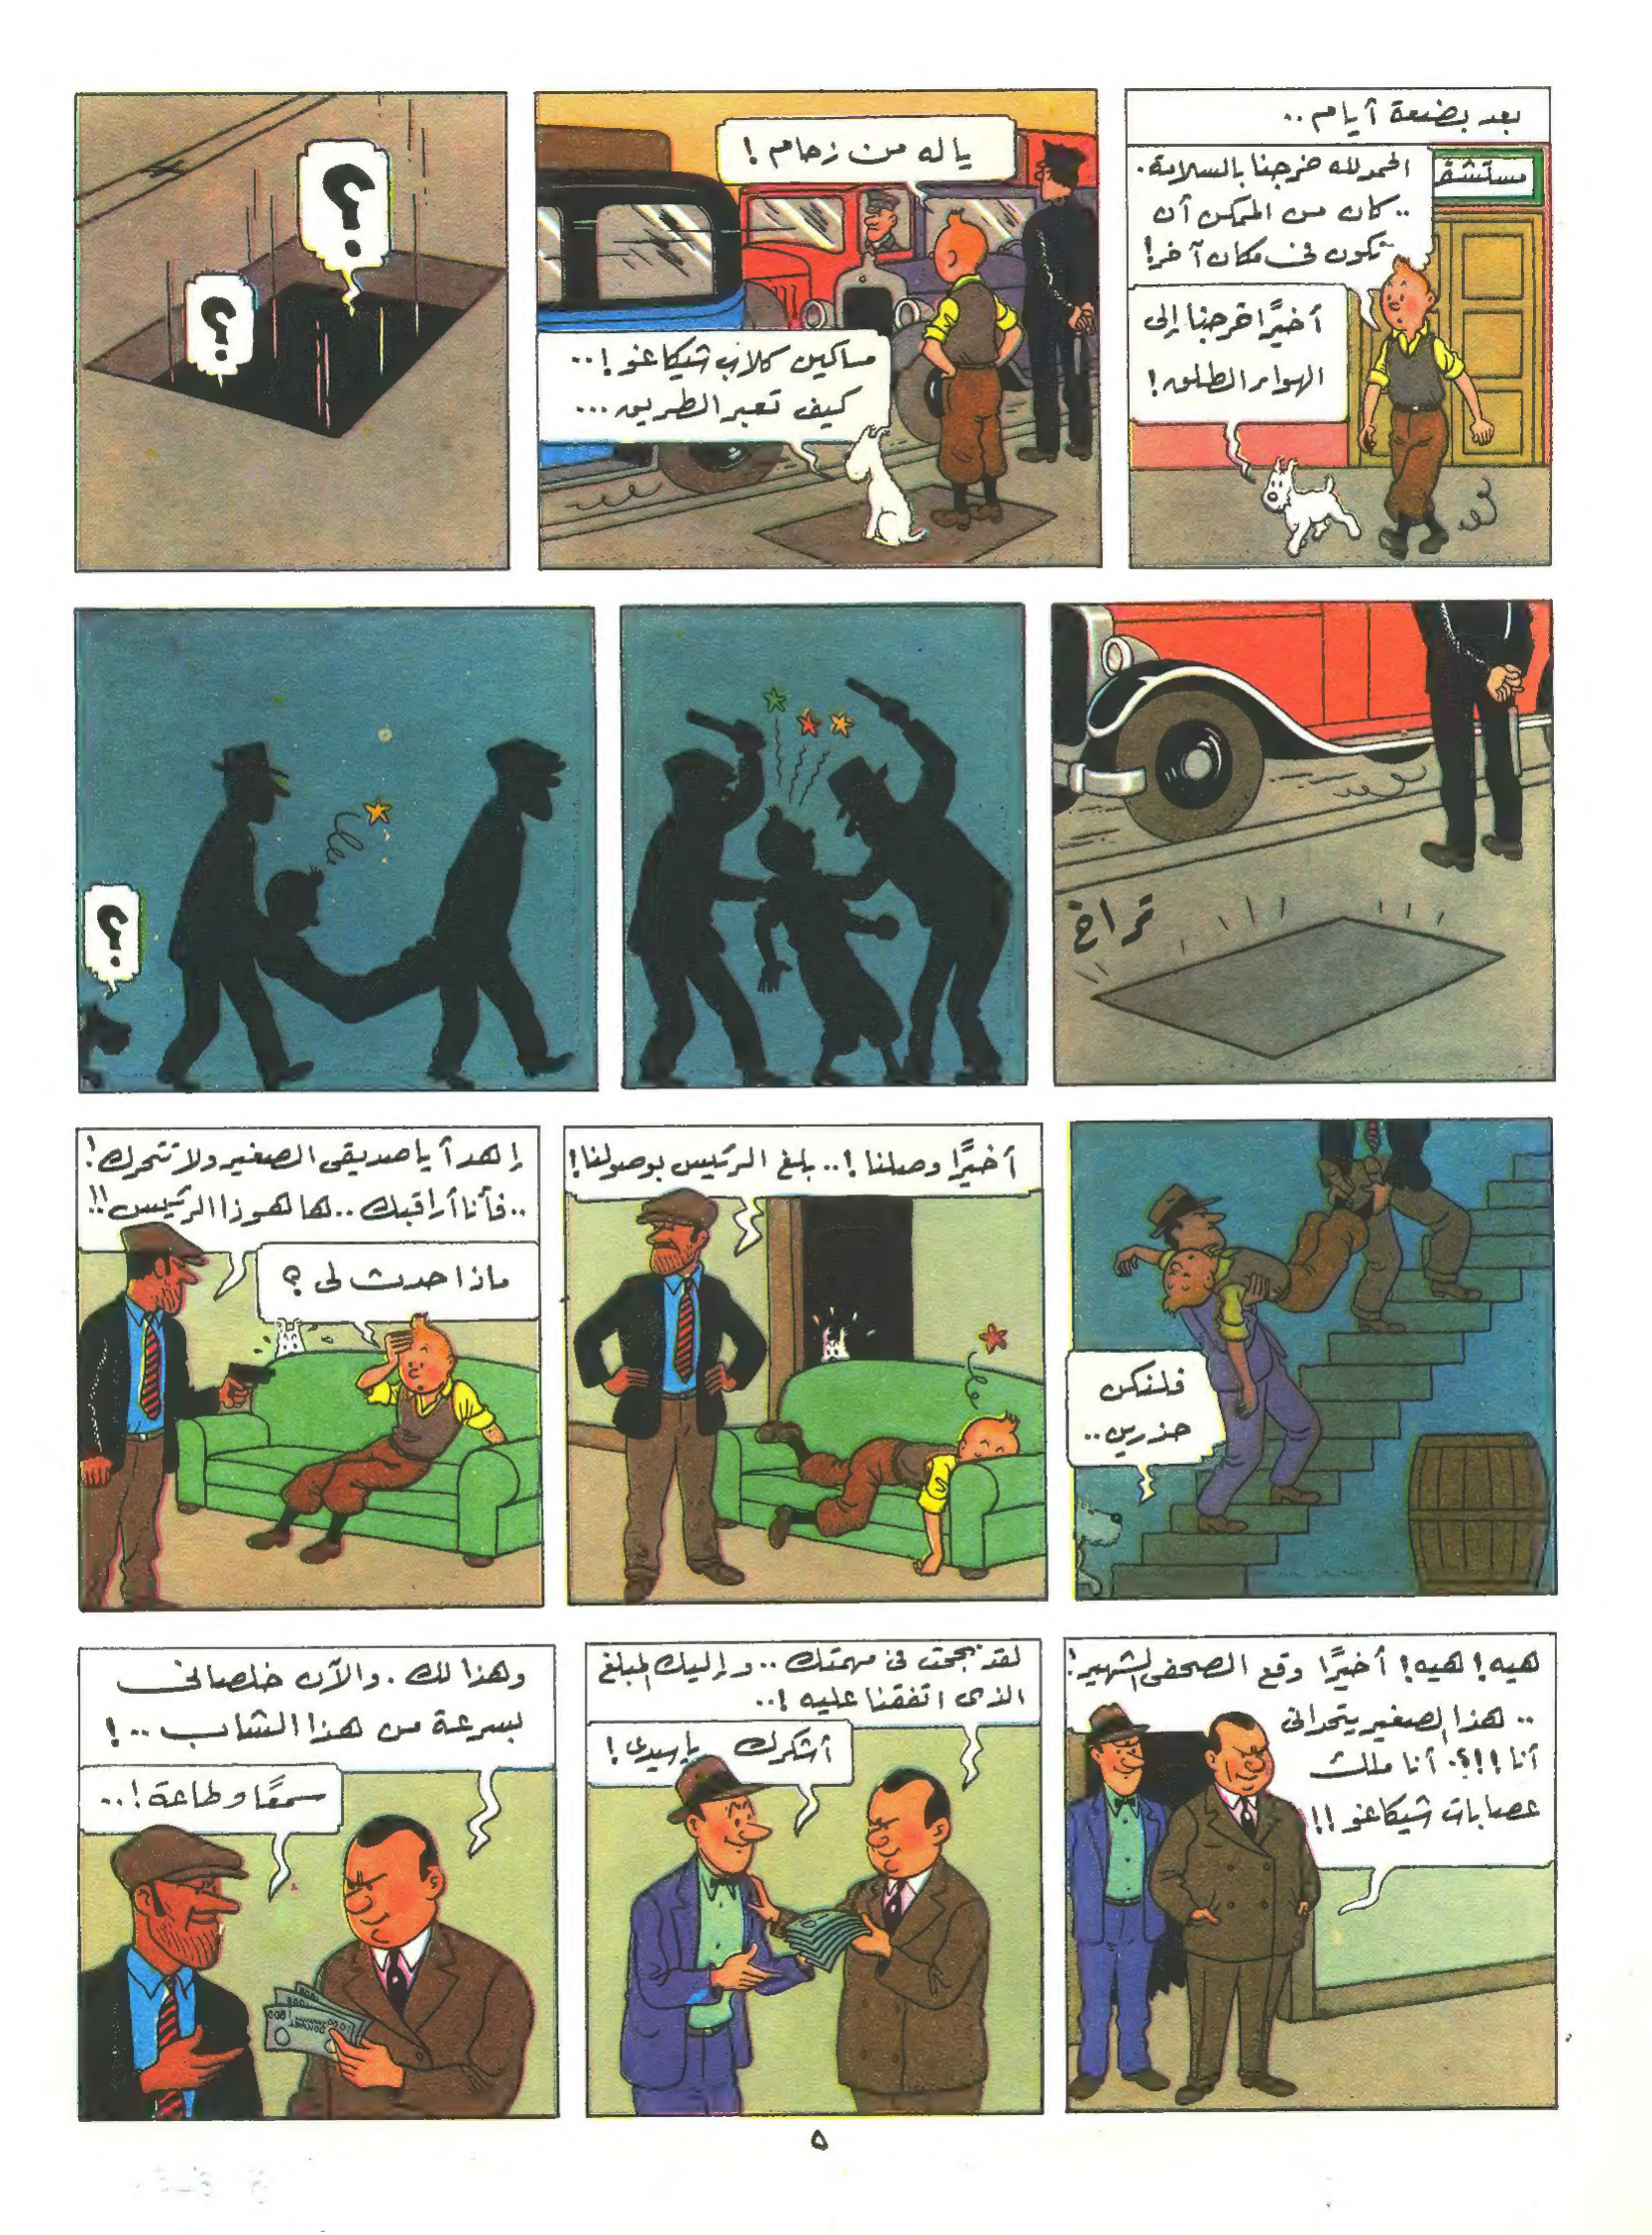 بعد بضعة أيام..
مستشفى
الحمد لله خرجنا بالسلامة.
.. كان من الممكن أن
نكون في مكان آخر!
أخيرًا خرجنا إلى
الهواء الطلق!
ياله من زحام!
مساكين كلاب شيكاغو!..
كيف تعبر الطريق...
؟
؟
تراخ
؟
فلنكن
حذرين..
أخيرًا وصلنا!.. بلغ الرئيس بوصولنا!
إهدأ ياصديقى الصغير ولا تتحرك!
..فأنا أراقبك.. ها هو ذا الرئيس!!
ماذا حدث لى؟
هيه! هيه! أخيرًا وقع الصحفى الشهير!
.. هذا الصغير يتحدانى
أنا!!؟. أنا ملك
عصابات شيكاغو!!
لقد نجحت فى مهمتك.. وإليك المبلغ
الذى اتفقنا عليه!..
أشكرك ياسيدى!
وهذا لك. والآن خلصانى
بسرعة من هذا الشاب..!
سمعًا وطاعة!..
٥